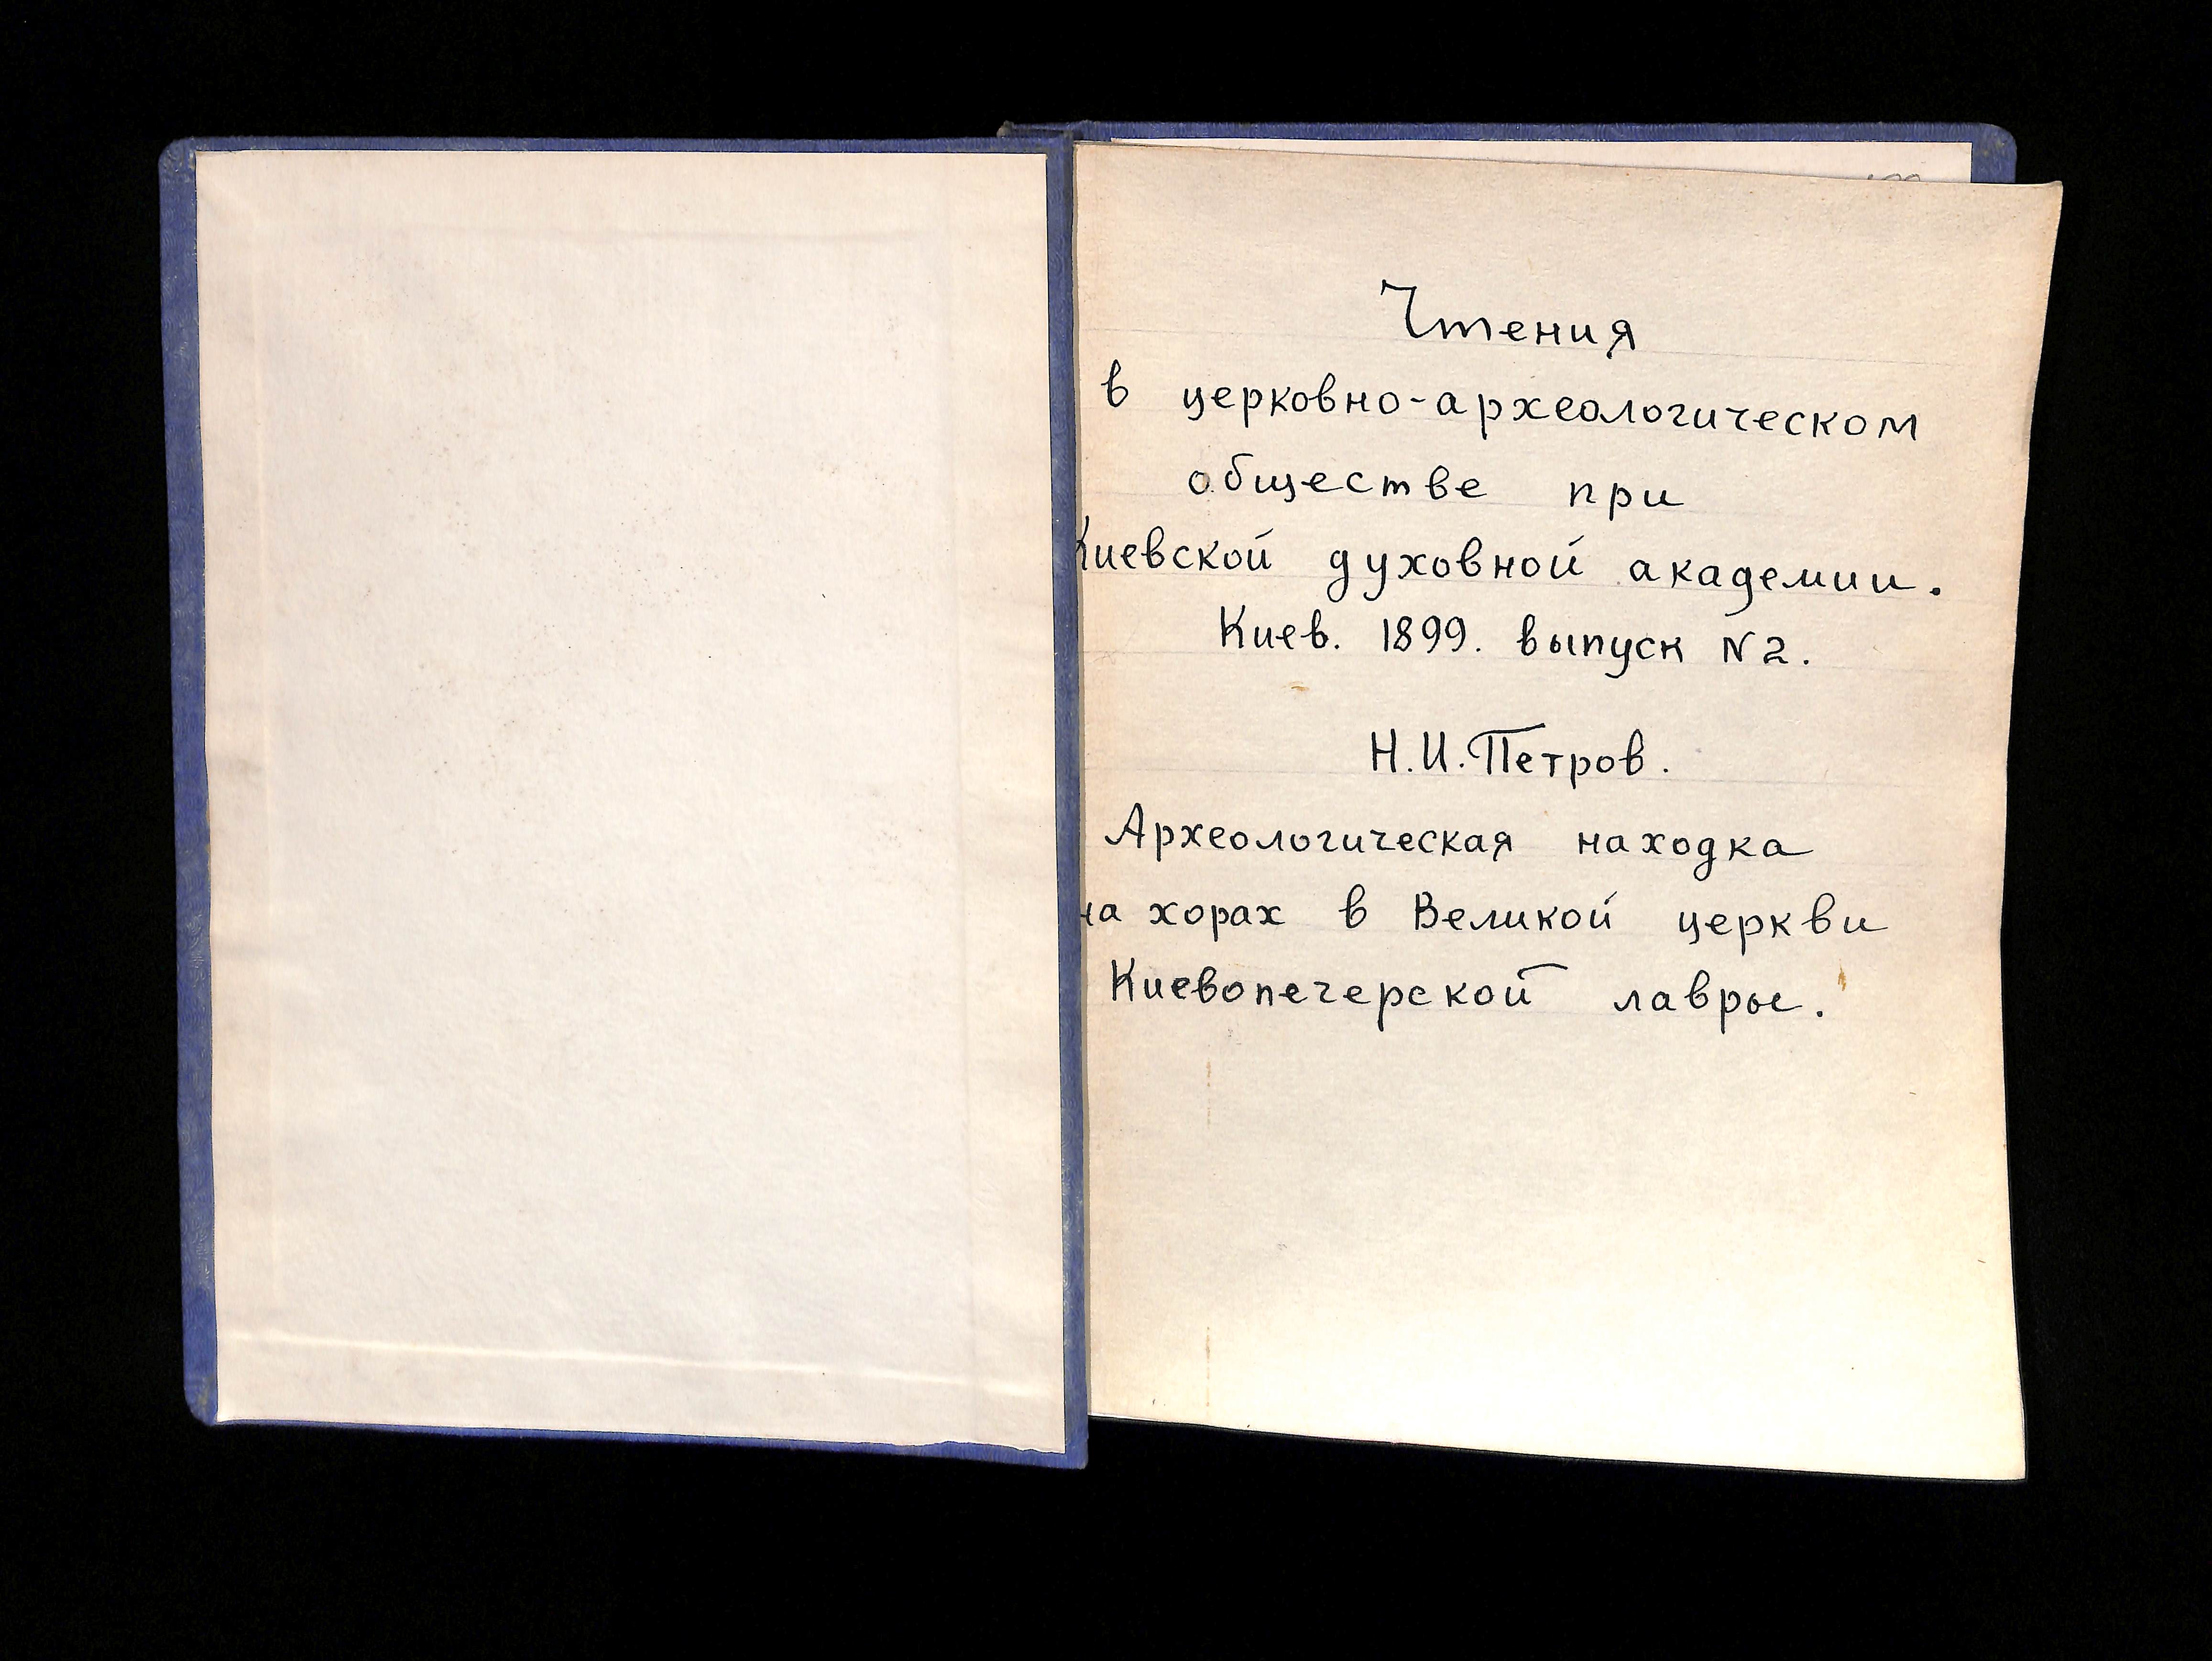 Чтения
в церковно-археологическом
обществе при
Киевской духовной академии.
Киев. 1899. выпуск N2.
Н.И.Петров.
Археологическая находка
на хорах в Великой церкви
Киевопечерской лавры.